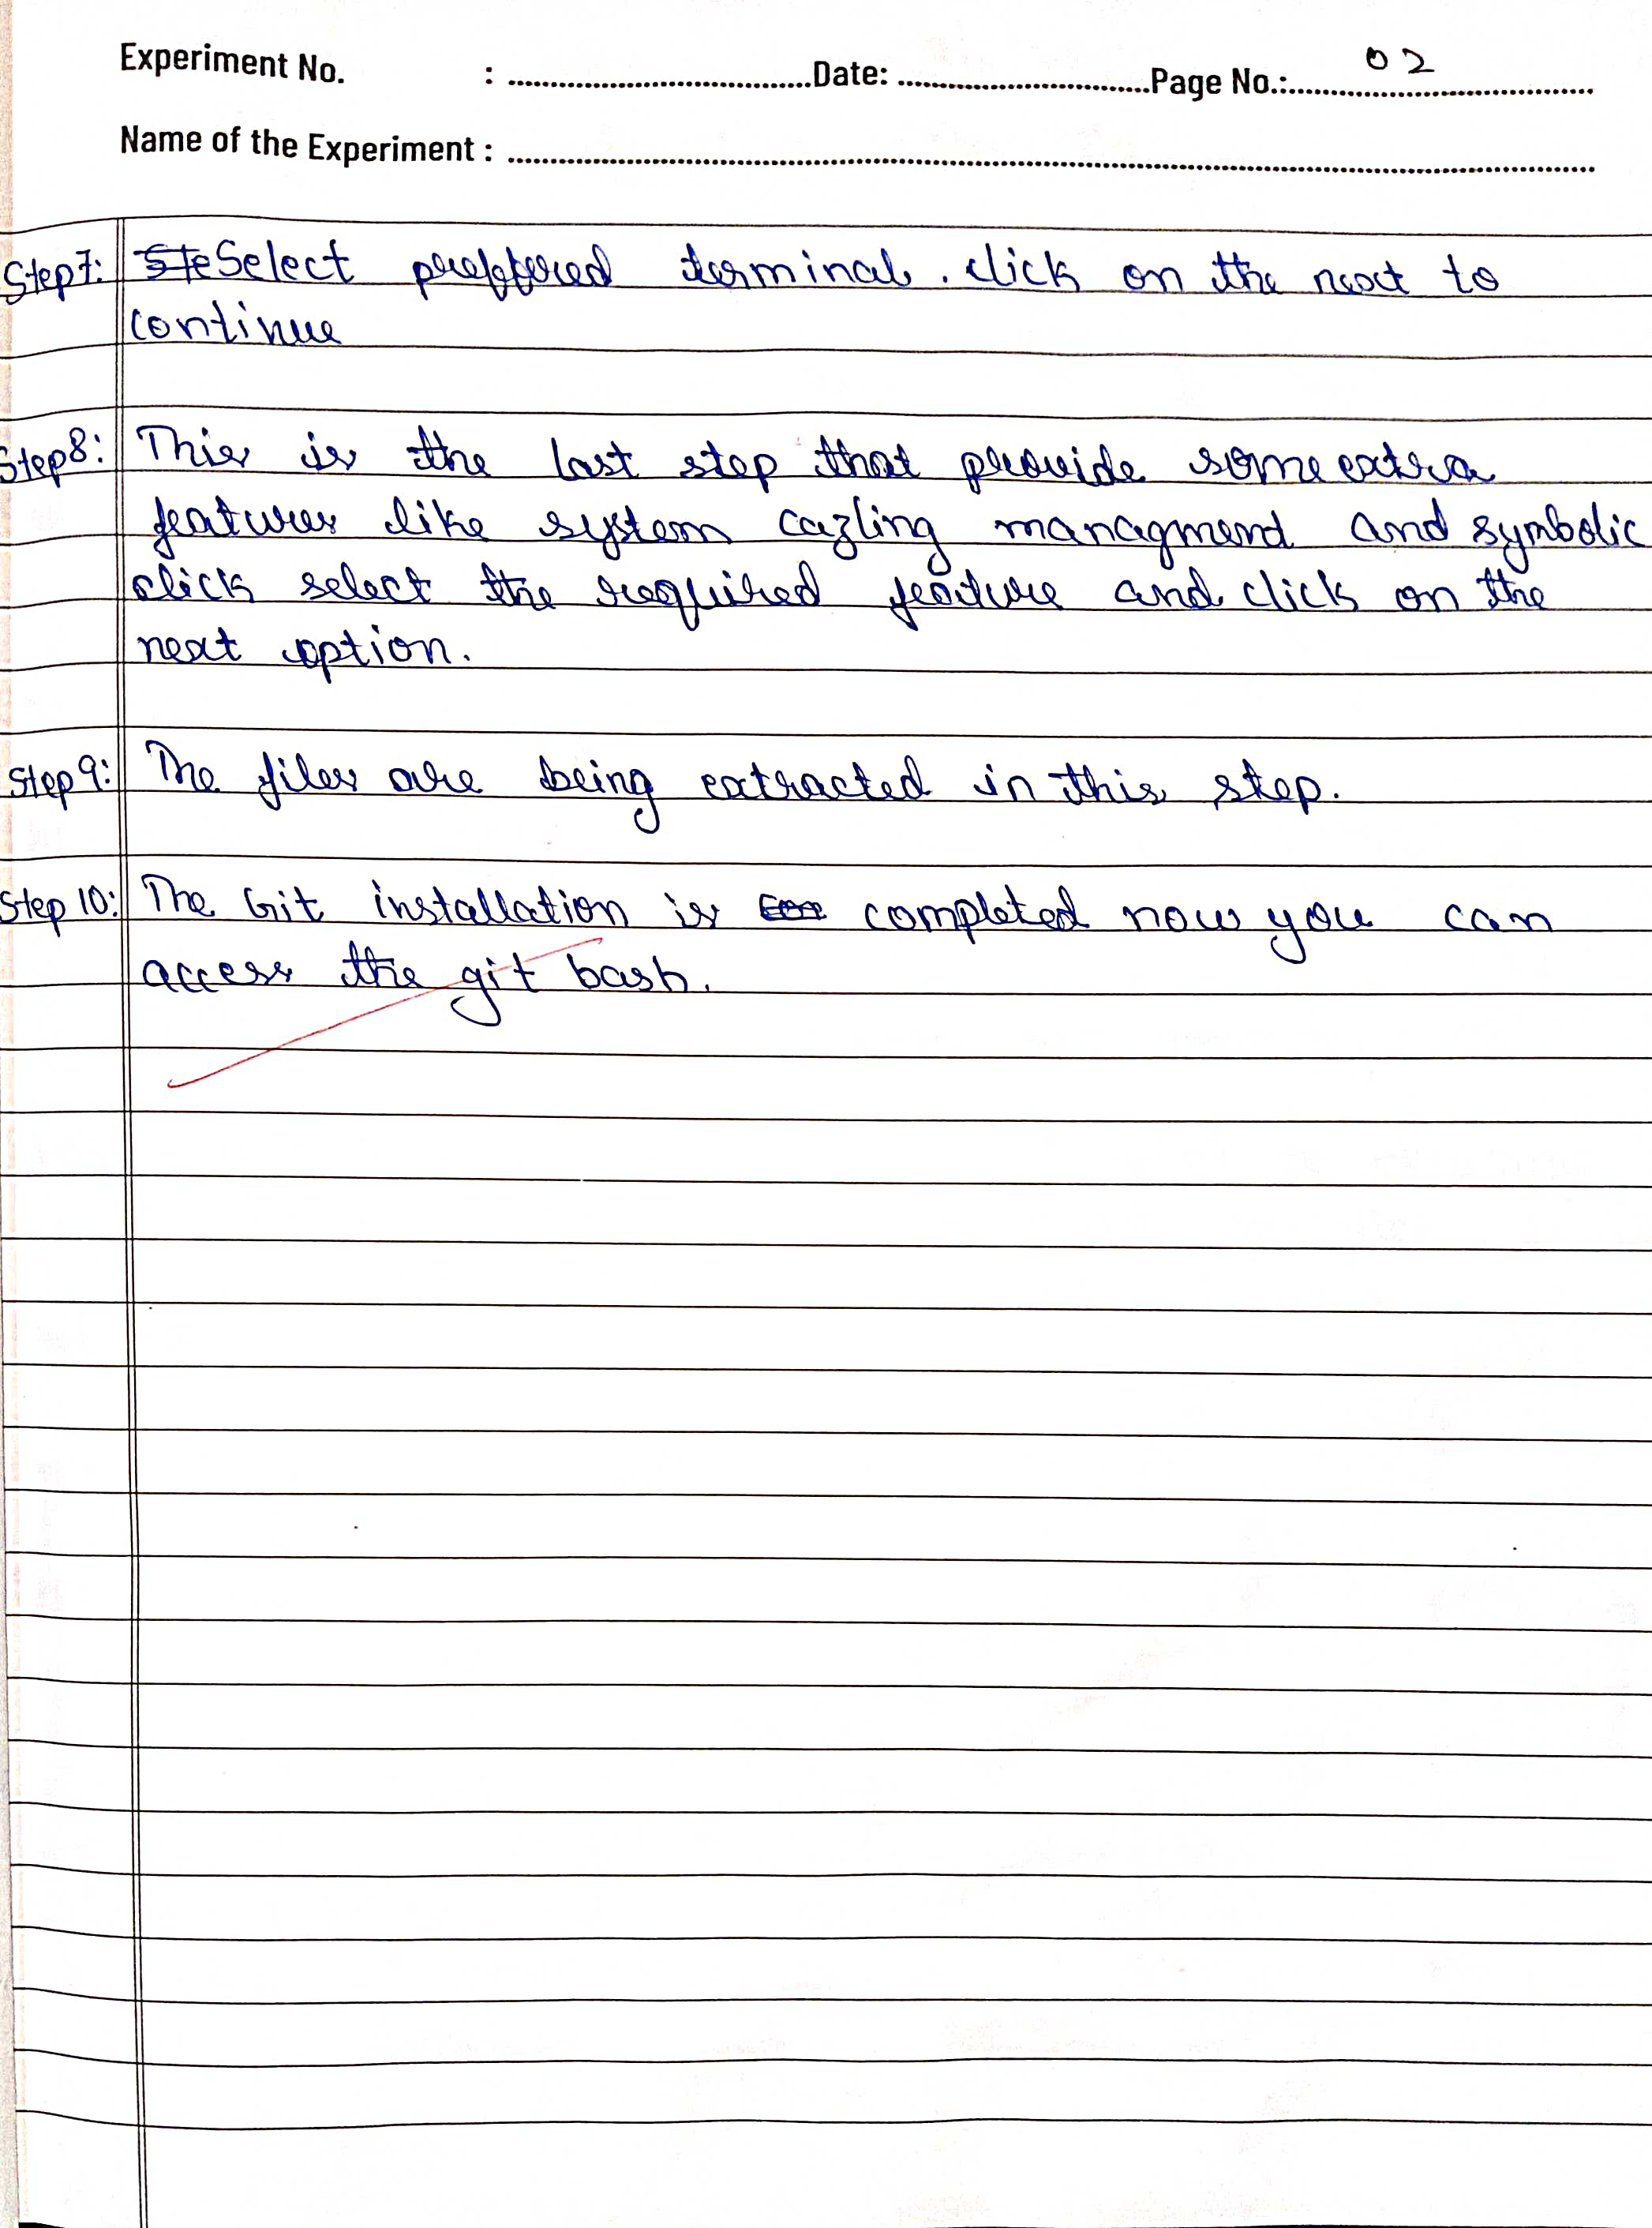 Experiment No. : Date: Page No.: 02
Name of the Experiment :
Step7: Select preffered terminal. click on the next to
continue
Step8: This is the last step that provide some extra
features like system cazling managmend and symbolic
click select the required feature and click on the
next option.
Step9: The files are being extracted in this step.
Step 10: The Git installation is completed now you can
access the git bash.